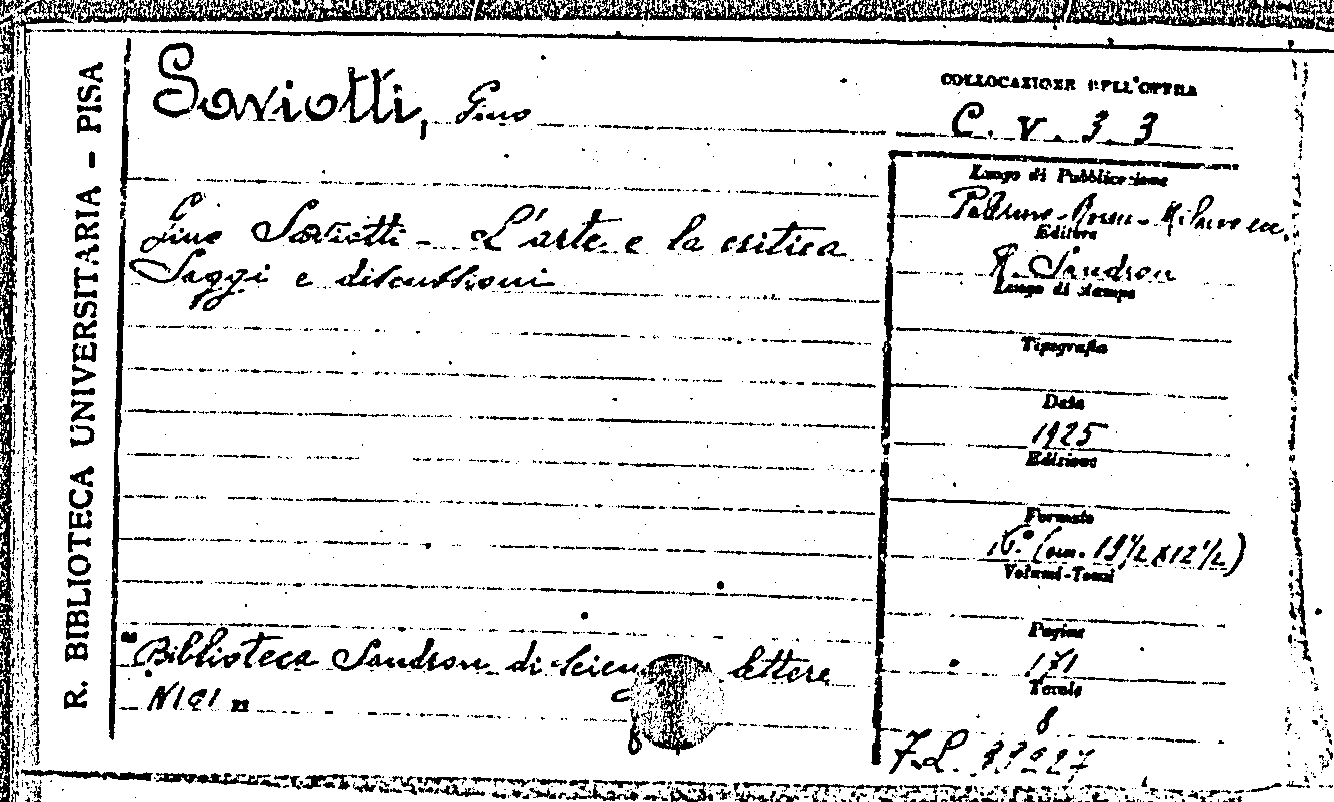 R. BIBLIOTECA UNIVERSITARIA - PISA
Saviotti, Gino
Gino Saviotti - L'arte e la critica
Saggi e discussioni
"Biblioteca Sandron di Scienze lettere
N 101"
COLLOCAZIONE DELL'OPERA
C. V. 3. 3
Luogo di Pubblicazione
Palermo - Roma - Milano ecc.
Editore
R. Sandron
Luogo di stampa
Tipografia
Data
1925
Edizione
Formato
16.° (cm. 19 1/2 x 12 1/2)
Volumi-Tomi
Pagine
171
Tavole
8